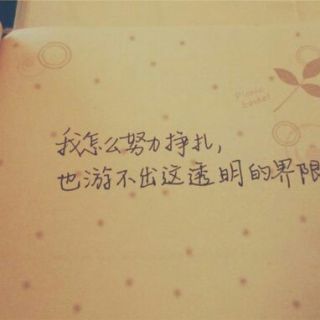 Picnic
basket
我怎么努力挣扎，
也游不出这透明的界限